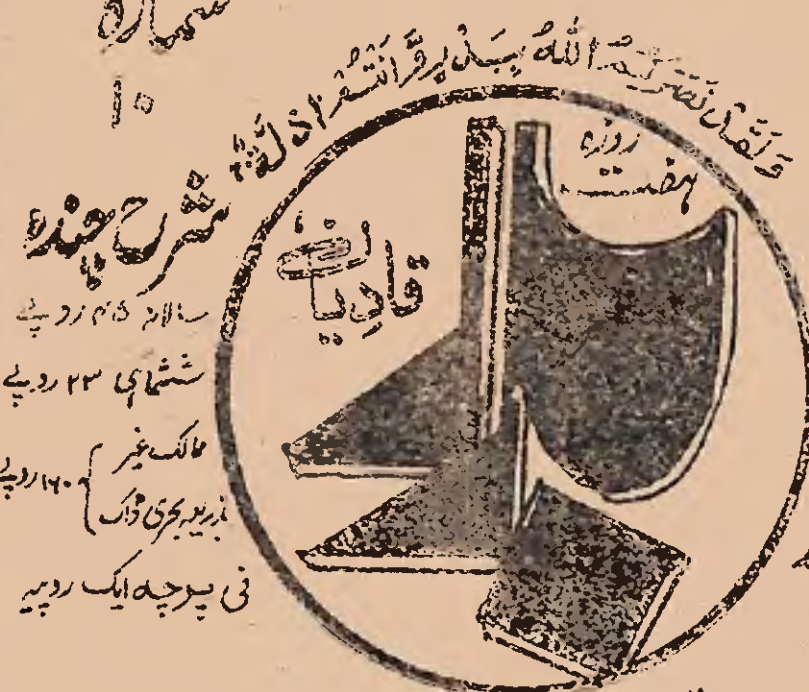 شمارہ
۱۰
وَلَقَدْ نَصَرَكُمُ اللّٰهُ بِبَدْرٍ وَّاَنْتُمْ اَذِلَّةٌ
ہفت روزہ
بدر
قادیان
شرح چندہ
سالانہ ۴۵ روپے
ششماہی ۲۳ روپے
ممالک غیر
بذریعہ بحری ڈاک
روپے
فی پرچہ ایک روپیہ